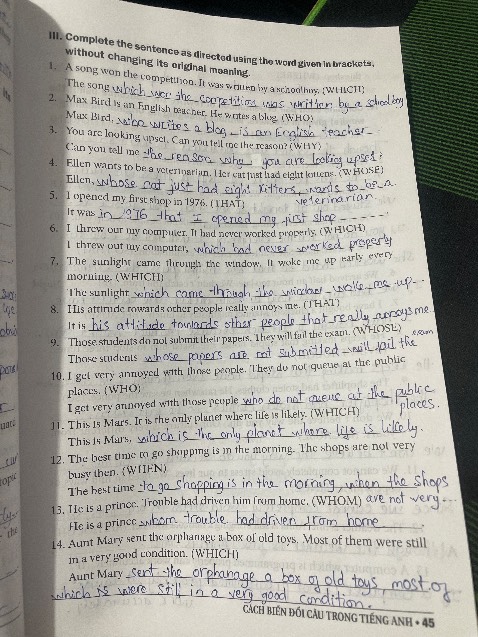 III. Complete the sentence as directed using the word given in brackets,
without changing its original meaning.
1. A song won the competition. It was written by a schoolboy. (WHICH)
The song which won the competition was written by a schoolboy
2. Max Bird is an English teacher. He writes a blog. (WHO)
Max Bird, who writes a blog, is an English teacher
3. You are looking upset. Can you tell me the reason? (WHY)
Can you tell me the reason why you are looking upset?
4. Ellen wants to be a veterinarian. Her cat just had eight kittens. (WHOSE)
Ellen, whose cat just had eight kittens, wants to be a
veterinarian
5. I opened my first shop in 1976. (THAT)
It was in 1976 that I opened my first shop
6. I threw out my computer. It had never worked properly. (WHICH)
I threw out my computer, which had never worked properly
7. The sunlight came through the window. It woke me up early every
morning. (WHICH)
The sunlight which came through the window woke me up
8. His attitude towards other people really annoys me. (THAT)
It is his attitude towards other people that really annoys me.
9. Those students do not submit their papers. They will fail the exam. (WHOSE)
Those students whose papers are not submitted will fail the exam
10. I get very annoyed with those people. They do not queue at the public
places. (WHO)
I get very annoyed with those people who do not queue at the public
places.
11. This is Mars. It is the only planet where life is likely. (WHICH)
This is Mars, which is the only planet where life is likely.
12. The best time to go shopping is in the morning. The shops are not very
busy then. (WHEN)
The best time to go shopping is in the morning, when the shops
are not very...
13. He is a prince. Trouble had driven him from home. (WHOM)
He is a prince whom trouble had driven from home
14. Aunt Mary sent the orphanage a box of old toys. Most of them were still
in a very good condition. (WHICH)
Aunt Mary sent the orphanage a box of old toys, most of
which is were still in a very good condition.
CÁCH BIẾN ĐỔI CÂU TRONG TIẾNG ANH • 45